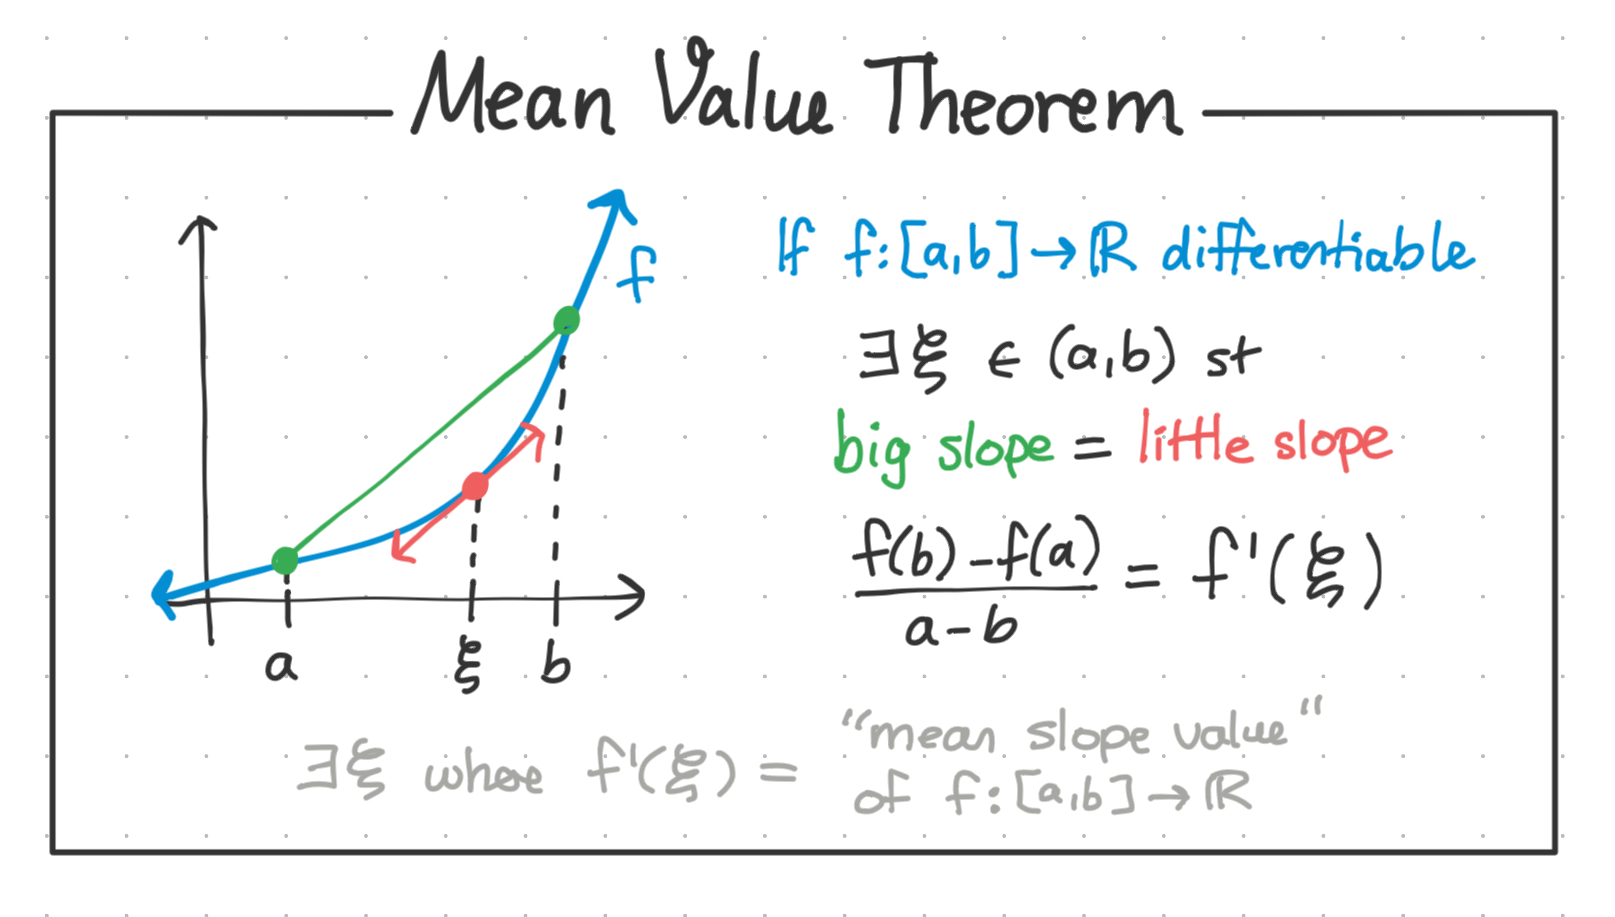 Mean Value Theorem
f
a
ξ
b
If f:[a,b]→ℝ differentiable
∃ξ ∈ (a,b) st
big slope = little slope
f(b)-f(a)
a-b
= f'(ξ)
∃ξ where f'(ξ) =
"mean slope value"
of f:[a,b]→ℝ